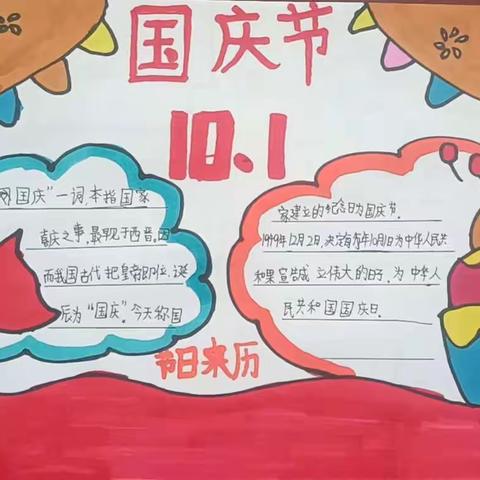 国庆节
10.1
国庆”一词,本指国家
喜庆之事,最早见于西晋。因
而我国古代把皇帝即位、诞
辰为“国庆”。今天称国
家建立的纪念日为国庆节。
1949年12月2日,决定每年10月1日为中华人民共
和果宣告成立伟大的日子,为中华人
民共和国国庆日.
节日来历